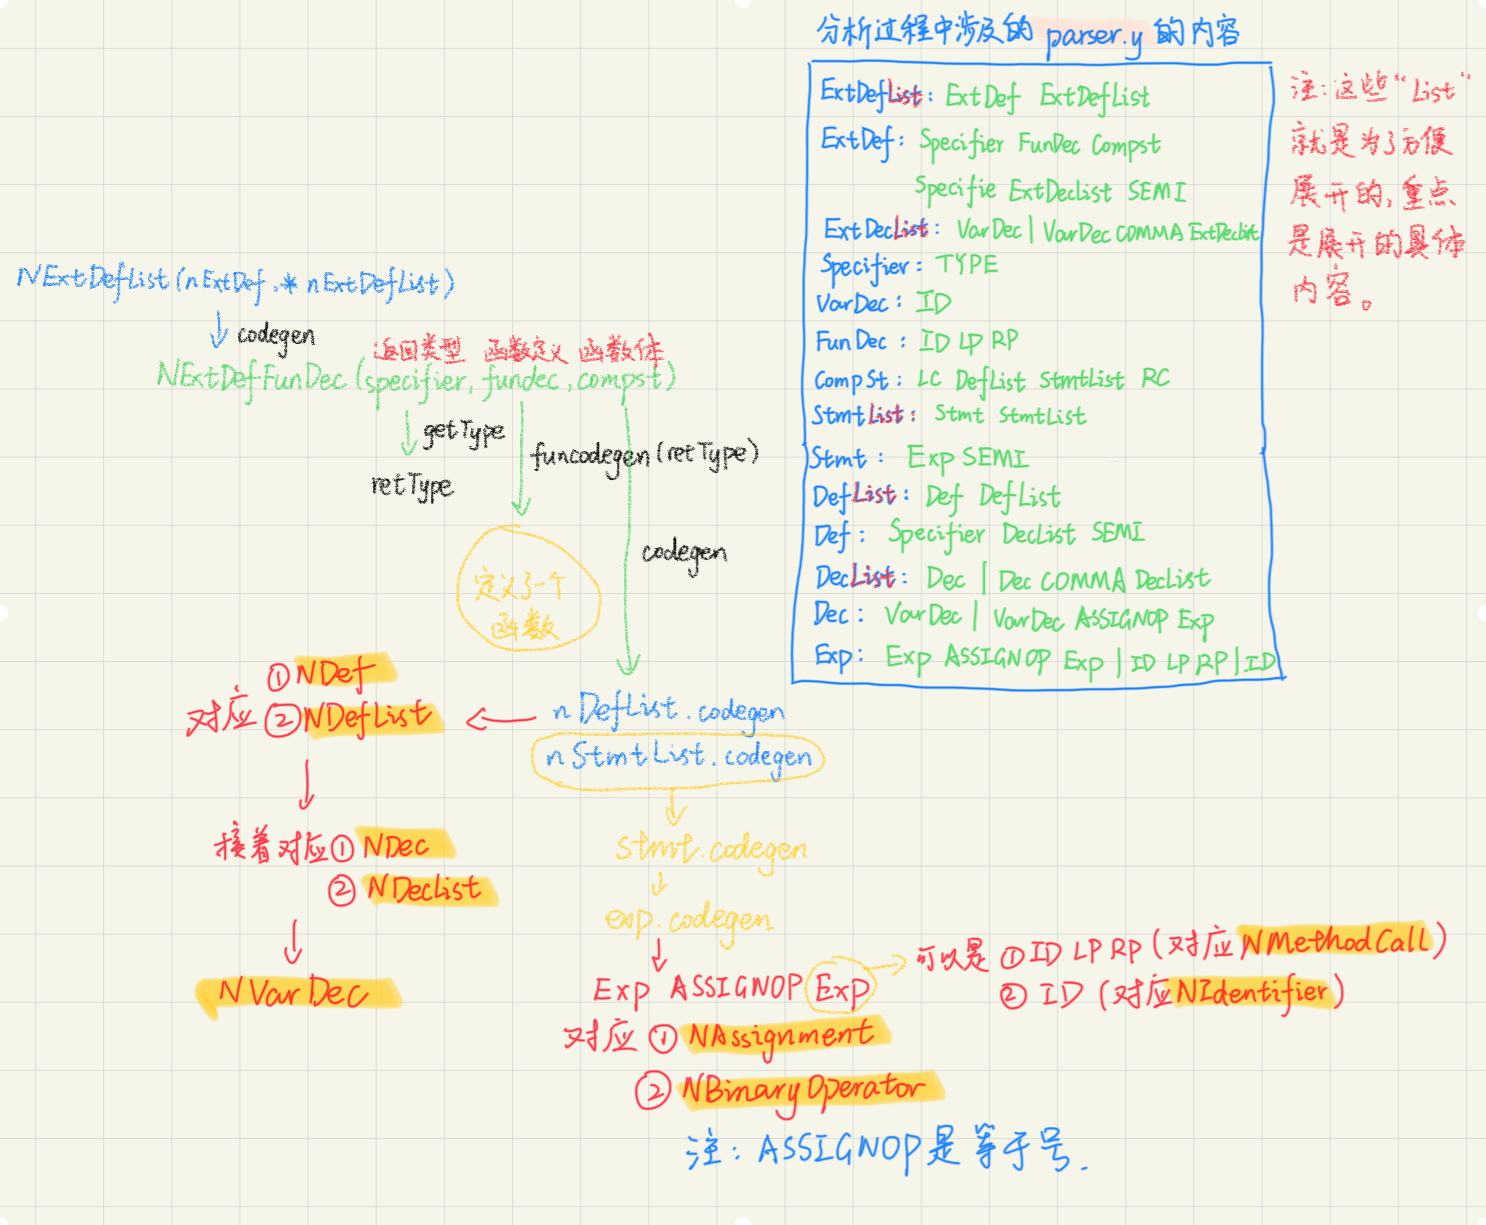 分析过程中涉及的 parser.y 的内容
ExtDefList: ExtDef ExtDefList
ExtDef: Specifier FunDec Compst
Specifie ExtDecList SEMI
ExtDecList: VarDec | VarDec COMMA ExtDecList
Specifier: TYPE
VarDec: ID
FunDec: ID LP RP
CompSt: LC DefList StmtList RC
StmtList: Stmt StmtList
Stmt: Exp SEMI
DefList: Def DefList
Def: Specifier DecList SEMI
DecList: Dec | Dec COMMA DecList
Dec: VarDec | VarDec ASSIGNOP Exp
Exp: Exp ASSIGNOP Exp | ID LP RP | ID
注:这些"List"
就是为了方便
展开的,重点
是展开的具体
内容。
NExtDefList(nExtDef,* nExtDefList)
codegen
返回类型 函数定义 函数体
NExtDefFunDec(specifier, fundec, compst)
getType
retType
funcodegen(retType)
定义了一个
函数
codegen
nDefList.codegen
nStmtList.codegen
①NDef
对应②NDefList
接着对应①NDec
②NDecList
NVarDec
Stmt.codegen
exp.codegen
Exp ASSIGNOP Exp
可以是 ①ID LP RP(对应NMethodCall)
② ID(对应NIdentifier)
对应 ① NAssignment
② NBinaryOperator
注: ASSIGNOP是等于号.